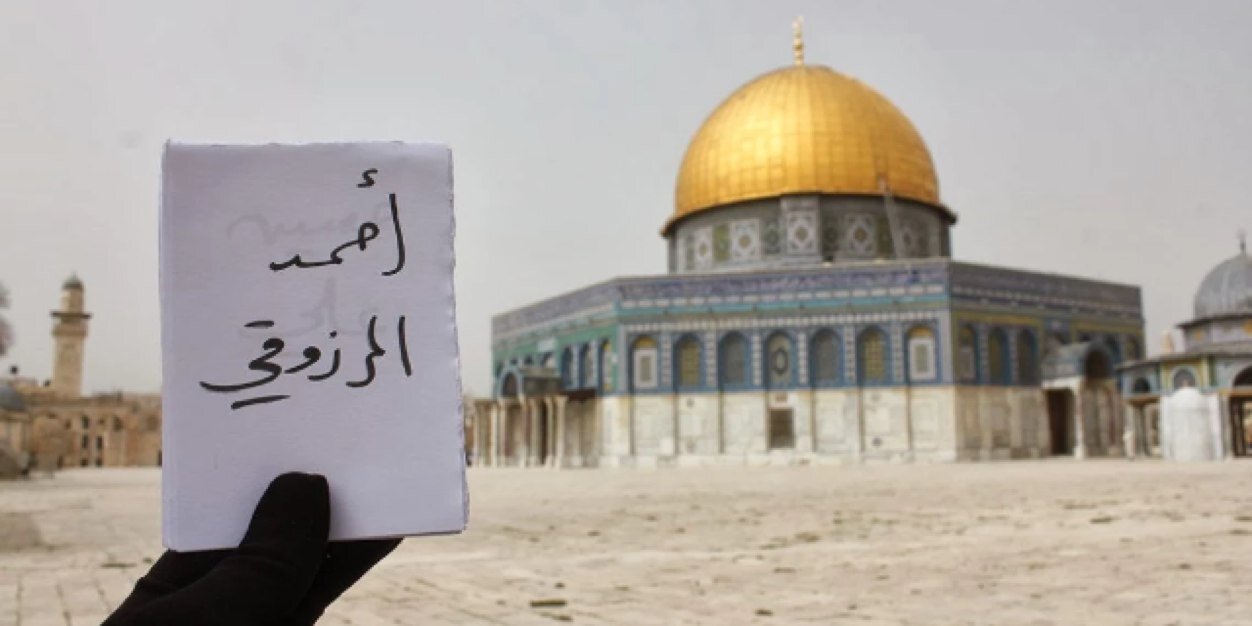 أحمد
المرزوقي